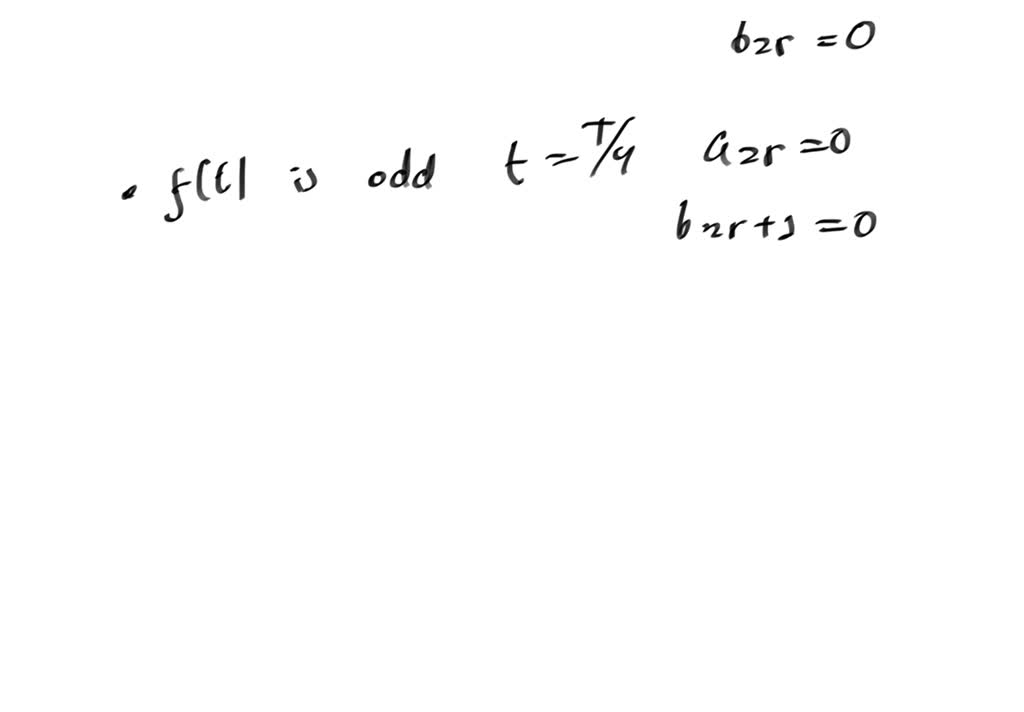 b2r = 0
• f(t) is odd t = T/4 a2r = 0
b2r+1 = 0